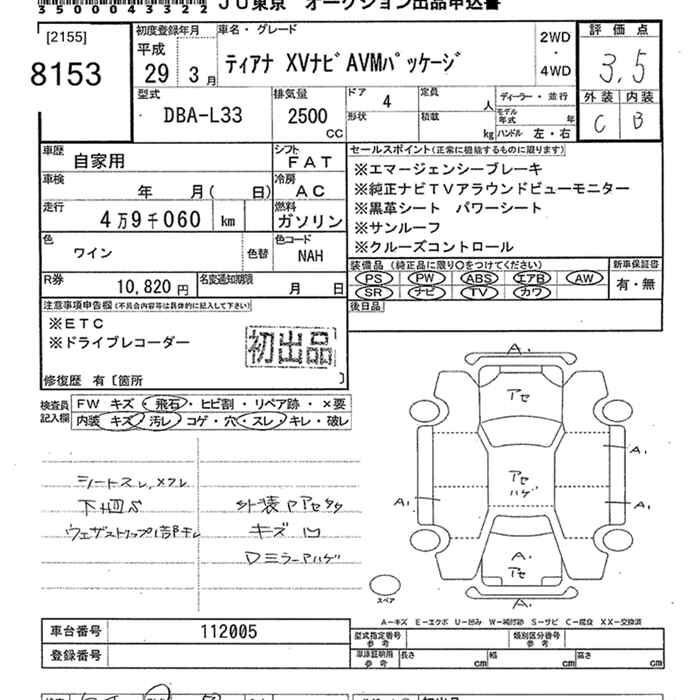 3 5 0 0 0 4 3 3 2 2 JU東京 オークション出品申込書
[2155]
8153
初度登録年月
平成
29 3月
車名・グレード
ティアナ XVナビAVMパッケージ
2WD
・
4WD
評価点
3.5
外装 内装
C B
型式
DBA-L33
排気量
2500
CC
ドア 4
形状
定員 人
積載 kg
ディーラー・並行
モデル年式 年
ハンドル 左・右
車歴 自家用
シフト FAT
車検 年 月( 日)
冷房 AC
走行 4万9千060 km
燃料 ガソリン
色 ワイン
色替
色コード NAH
R券 10,820円
名変通知期限 月 日
セールスポイント(正常に機能するものに限ります)
※エマージェンシーブレーキ
※純正ナビTVアラウンドビューモニター
※黒革シート パワーシート
※サンルーフ
※クルーズコントロール
装備品(純正品に限り○をつけてください)
PS PW ABS エアB AW
SR ナビ TV カワ
新車保証書
有・無
後日品
注意事項申告欄(不具合内容等は具体的に記入して下さい)
※ETC
※ドライブレコーダー
初出品
修復歴 有〔箇所 〕
検査員
記入欄
FW キズ・飛石・ヒビ割・リペア跡・×要
内装 キズ・汚レ・コゲ・穴・スレ・キレ・破レ
シートスレ、メクレ
下廻S
ウェザストリップ1部キレ
外装アアセタタ
キズ 凹
Dミラーアハゲ
A.
アセ
A.
アセ
ハゲ
A.
A.
A.
アセ
A.
スペア
A―キズ E―エクボ U―凹み W―補修跡 S―サビ C―腐食 XX―交換済
車台番号 112005
登録番号
型式指定番号
参考
類別区分番号
参考
車庫証明用
参考
長さ cm 幅 cm 高さ cm